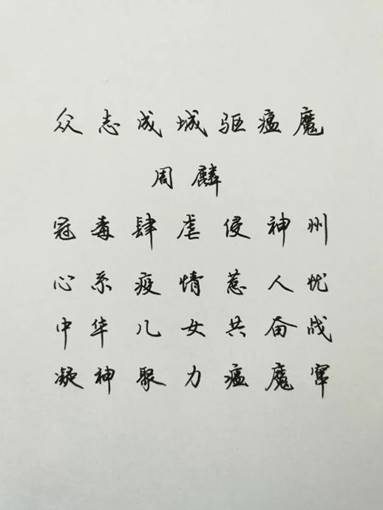 众志成城驱瘟魔
周麟
冠毒肆虐侵神州
心系疫情惹人忧
中华儿女共奋战
凝神聚力瘟魔窜